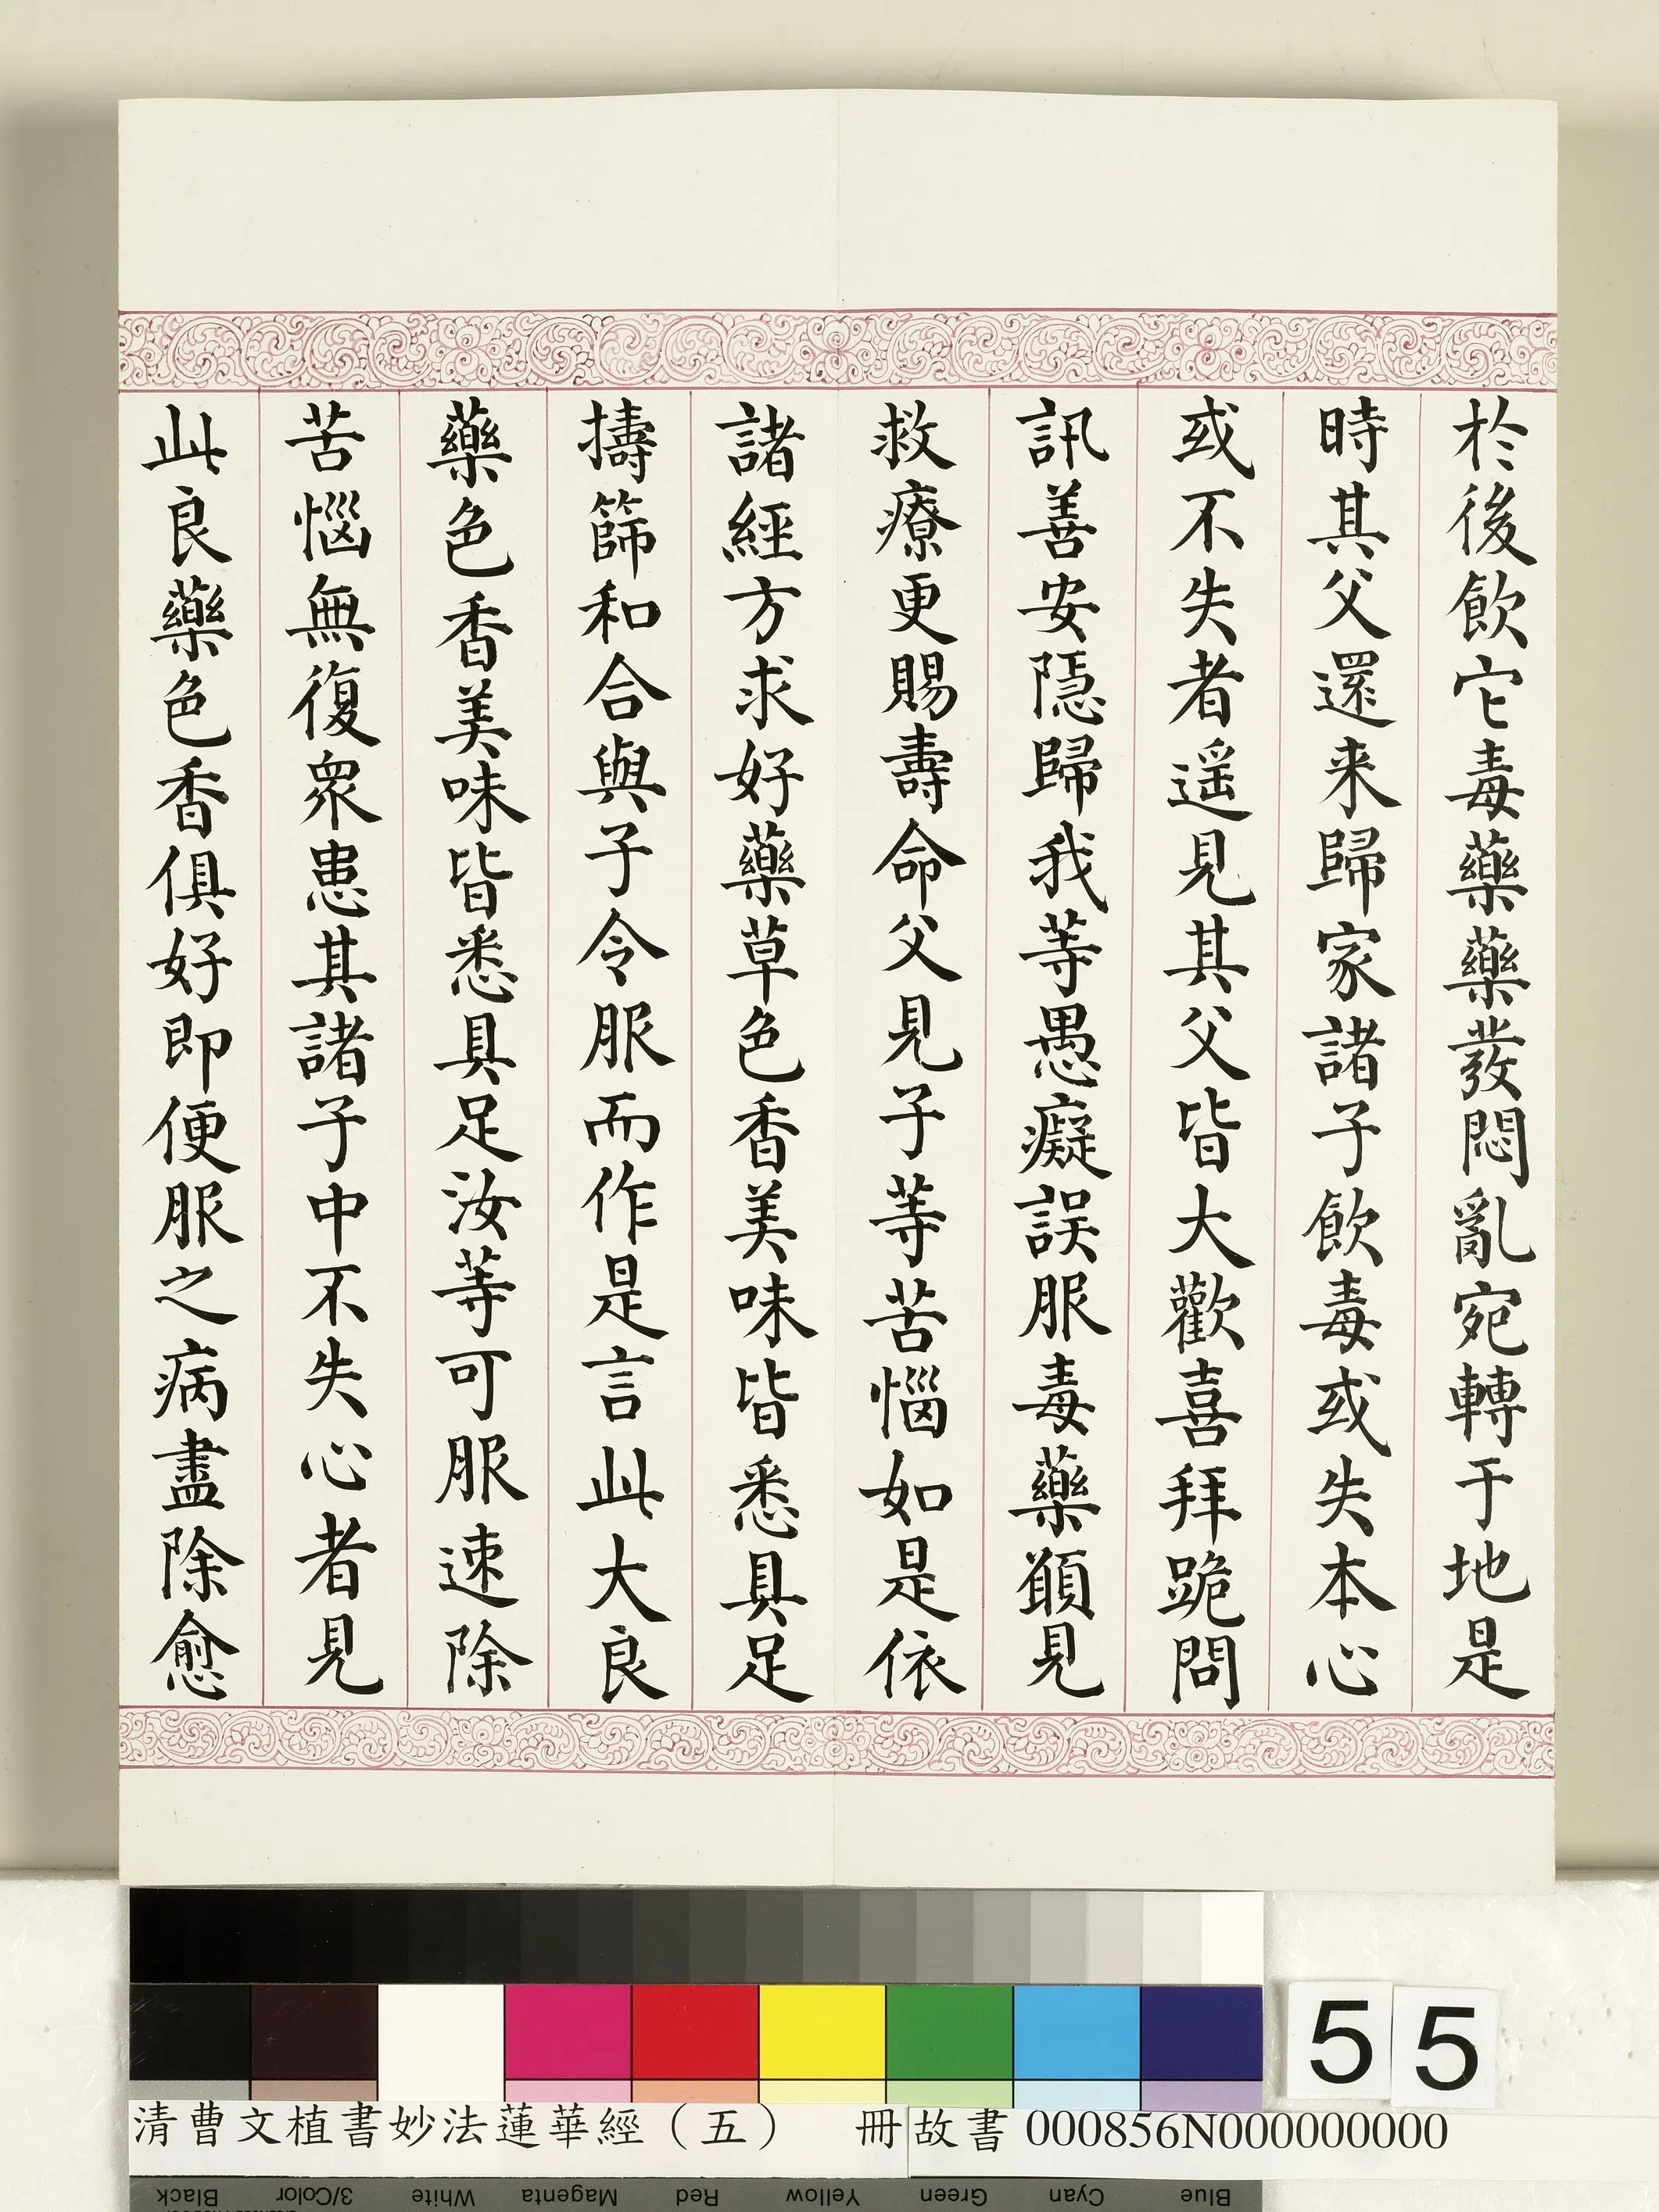 於後飲它毒藥藥發悶亂宛轉于地是
時其父還来歸家諸子飲毒或失本心
或不失者遥見其父皆大歡喜拜跪問
訊善安隱歸我等愚癡誤服毒藥願見
救療更賜壽命父見子等苦惱如是依
諸經方求好藥草色香美味皆悉具足
擣篩和合與子令服而作是言此大良
藥色香美味皆悉具足汝等可服速除
苦惱無復眾患其諸子中不失心者見
此良藥色香俱好即便服之病盡除愈
55
清曹文植書妙法蓮華經（五） 冊 故書 000856N000000000
Black 3/Color White Magenta Red Yellow Green Cyan Blue